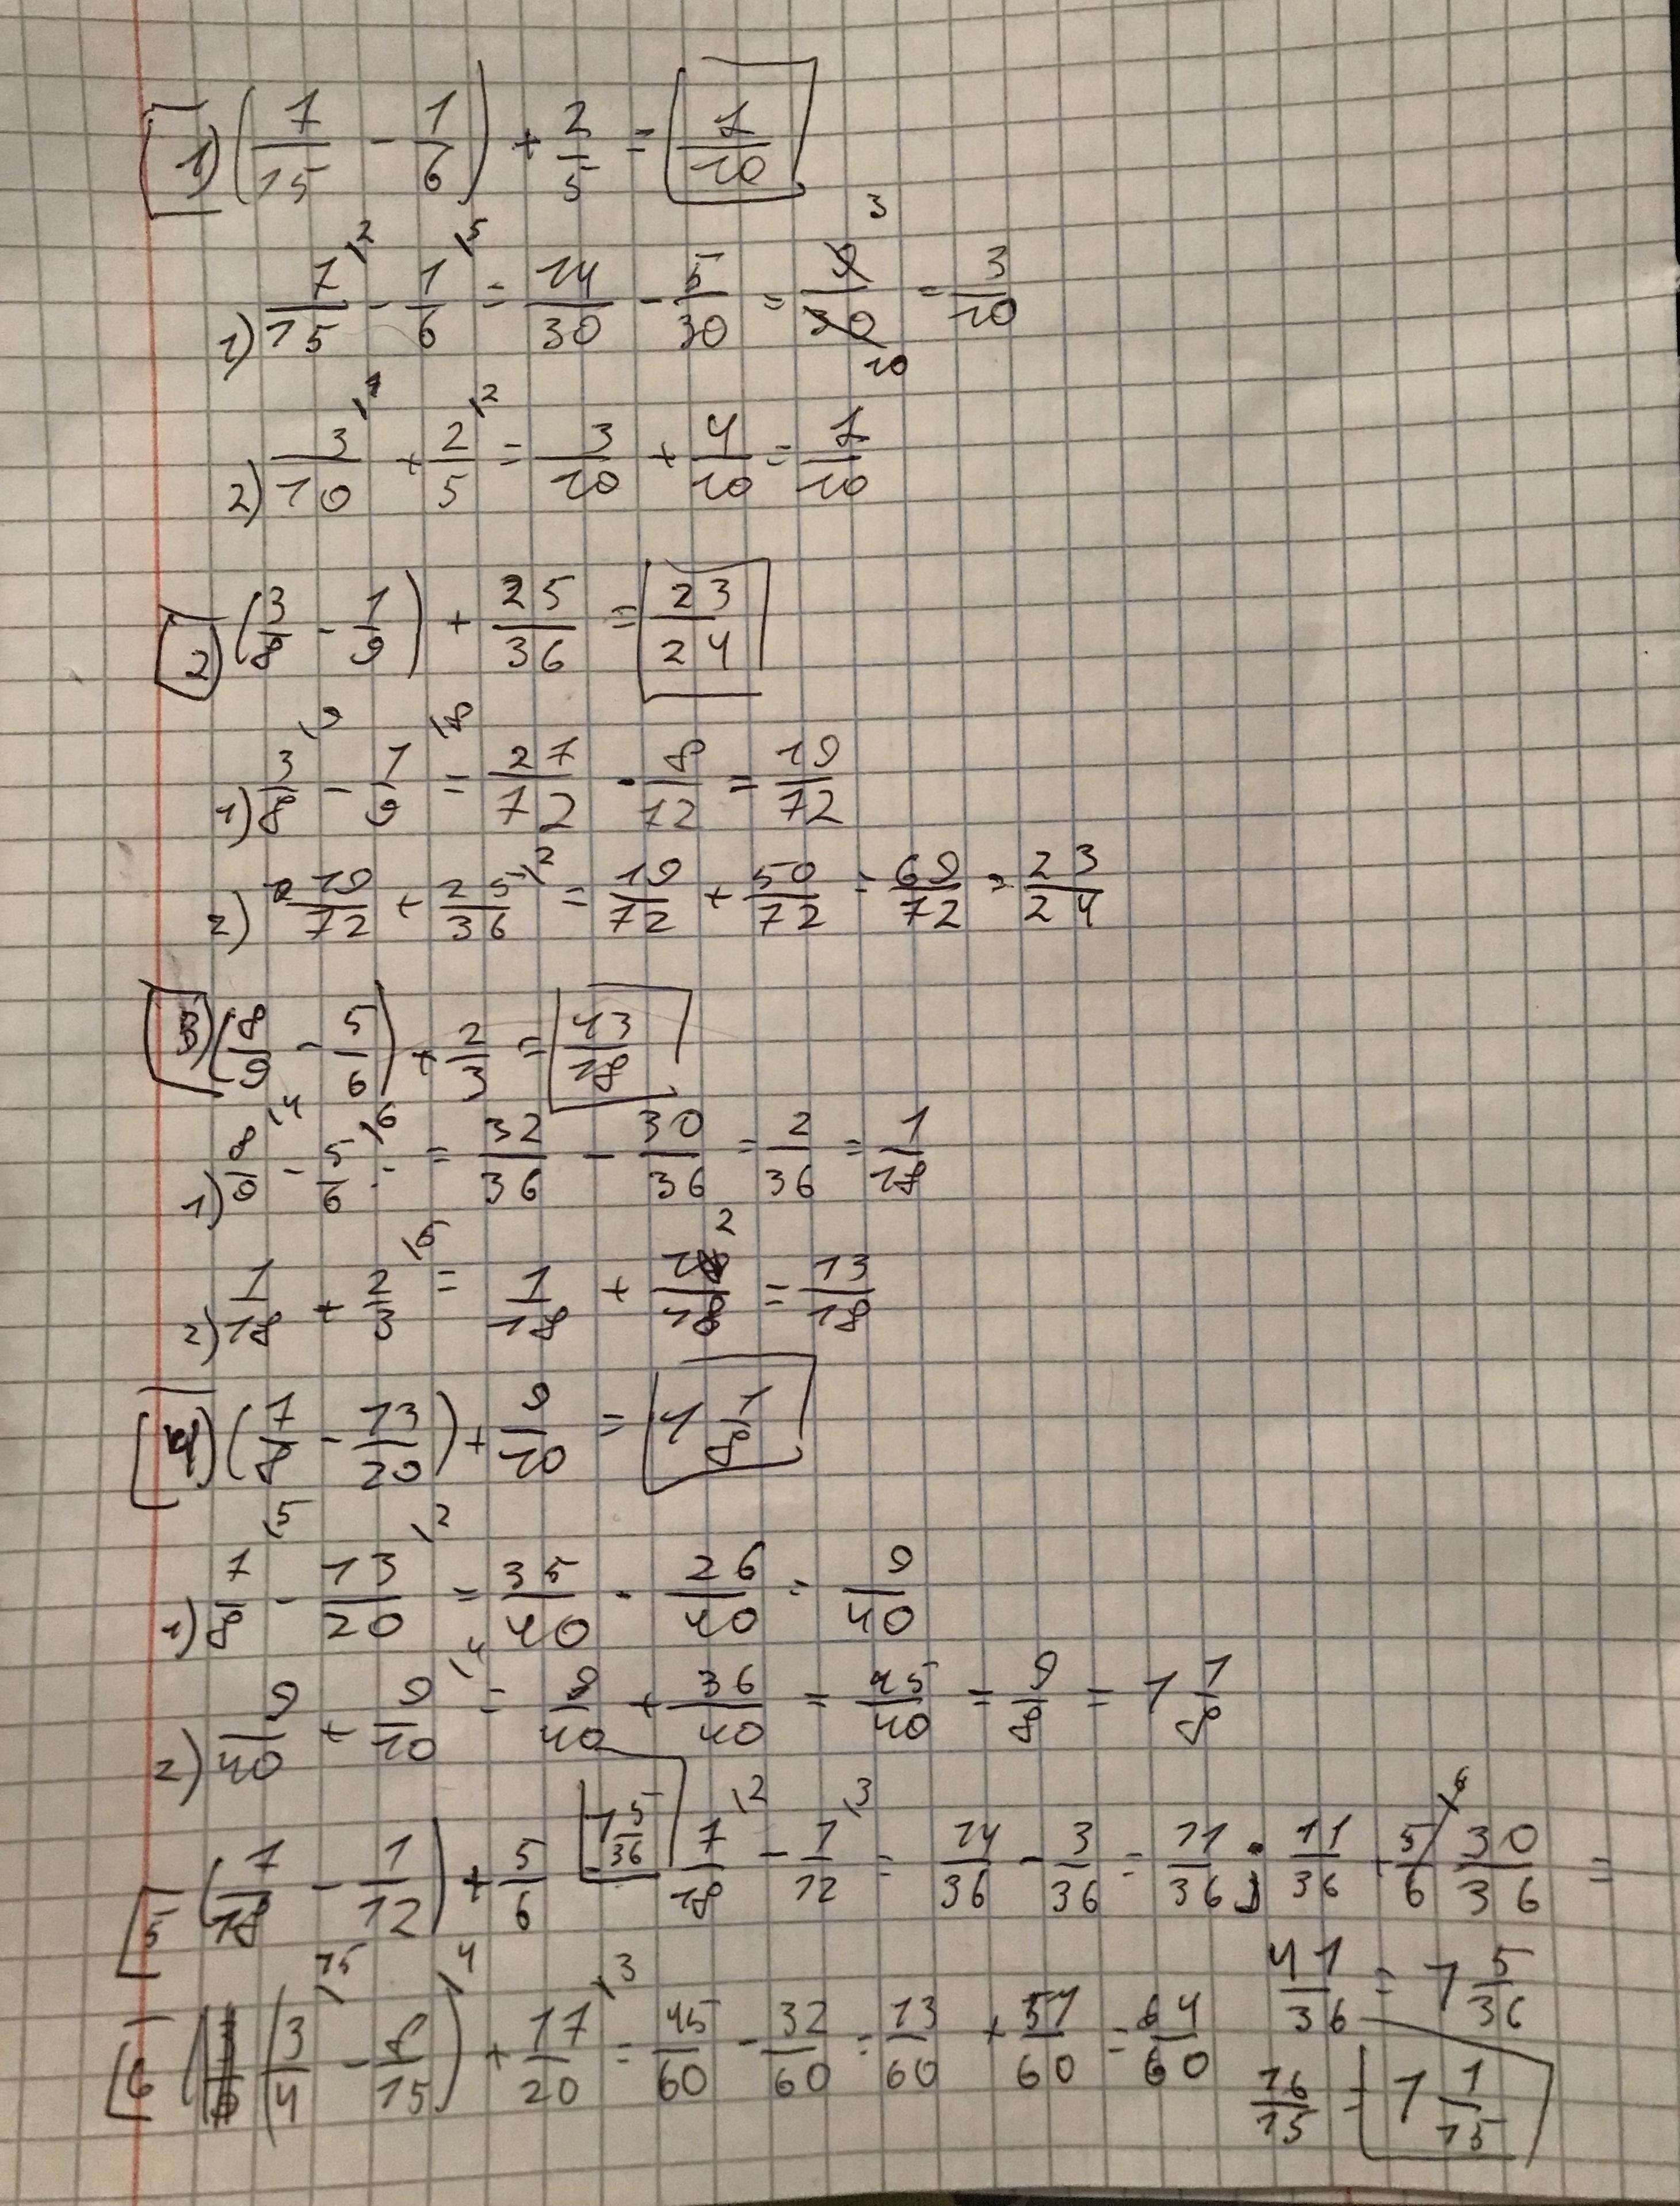 1) (7/15 - 1/6) + 2/5 = 7/10
1) 7/15 \2 - 1/6 \5 = 14/30 - 5/30 = 9/30 = 3/10
2) 3/10 \1 + 2/5 \2 = 3/10 + 4/10 = 7/10
2) (3/8 - 1/9) + 25/36 = 23/24
1) 3/8 \9 - 1/9 \8 = 27/72 - 8/72 = 19/72
2) 19/72 + 25/36 \2 = 19/72 + 50/72 = 69/72 = 23/24
3) (8/9 - 5/6) + 2/3 = 13/18
1) 8/9 \4 - 5/6 \6 = 32/36 - 30/36 = 2/36 = 1/18
2) 1/18 + 2/3 \6 = 1/18 + 12/18 = 13/18
4) (7/8 - 13/20) + 9/10 = 1 1/8
1) 7/8 \5 - 13/20 \2 = 35/40 - 26/40 = 9/40
2) 9/40 + 9/10 \4 = 9/40 + 36/40 = 45/40 = 9/8 = 1 1/8
5 (7/18 - 1/12) + 5/6 = 1 5/36 7/18 \2 - 1/12 \3 = 14/36 - 3/36 = 11/36; 11/36 + 5/6 \6 30/36 =
41/36 = 1 5/36
6 (3/4 \15 - 8/15 \4) + 17/20 \3 = 45/60 - 32/60 = 13/60 + 51/60 = 64/60
16/15 = 1 1/15